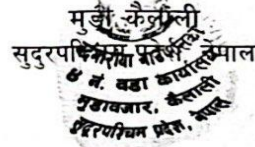 मुडा, कैलाली
सुदुरपश्चिम प्रदेश, नेपाल
४ नं. वडा कार्यालय
मुडाबजार, कैलाली
सुदूरपश्चिम प्रदेश, नेपाल